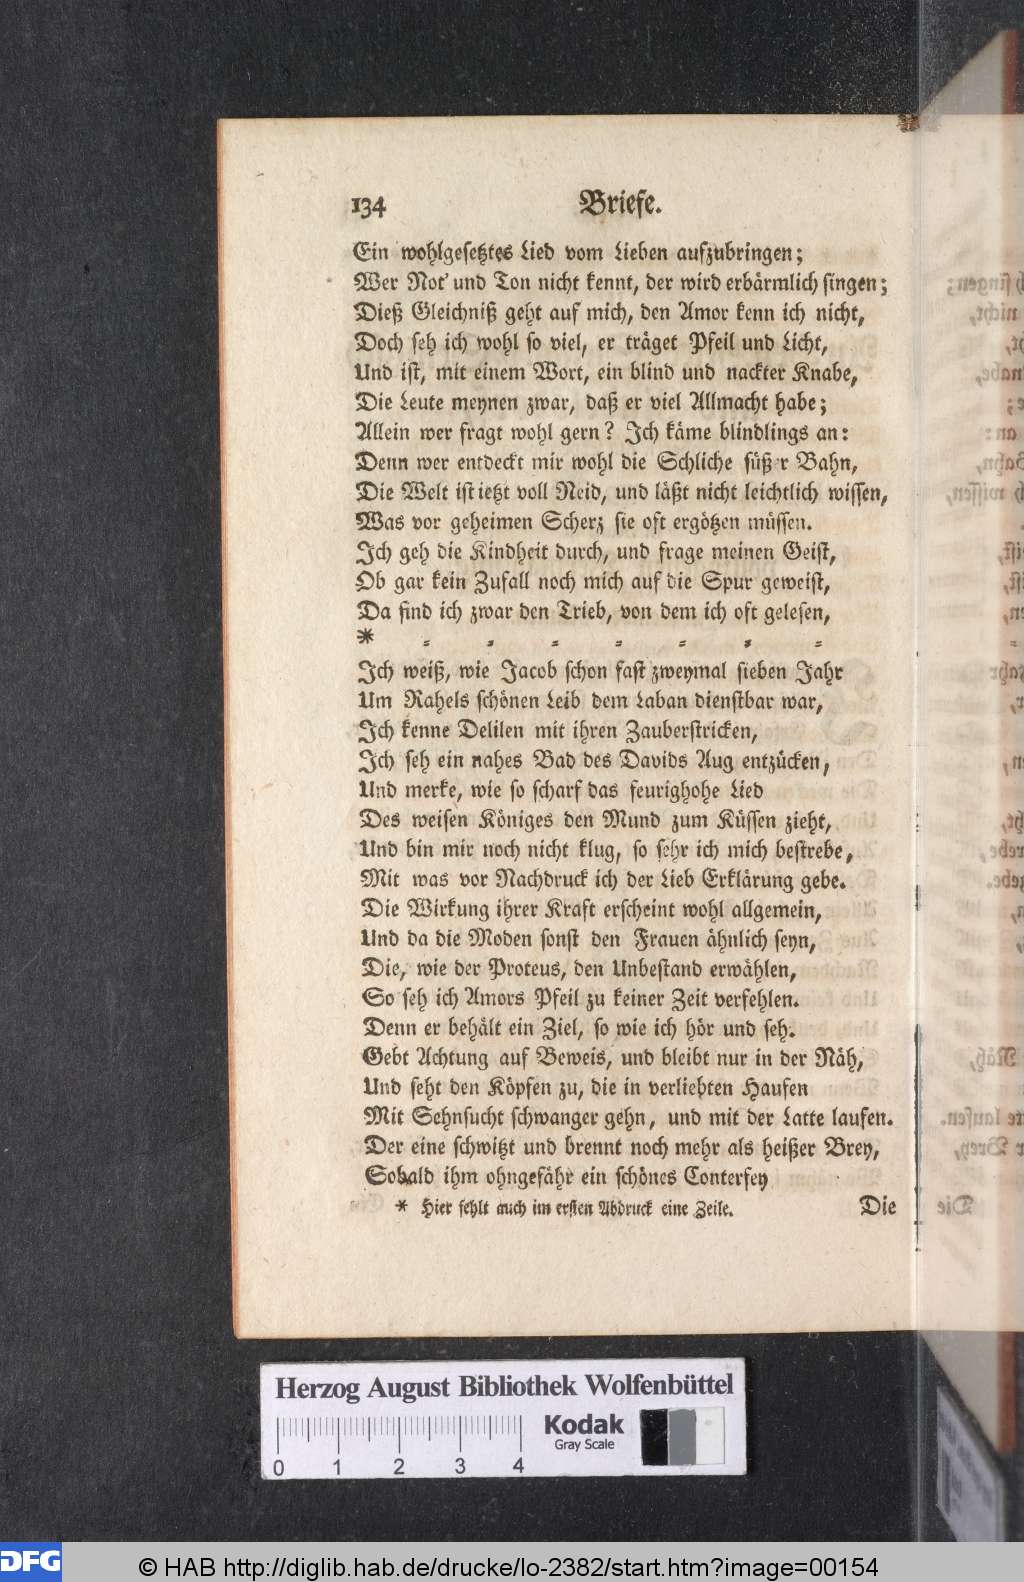 134 Briefe.
Ein wohlgesetztes Lied vom Lieben aufzubringen;
Wer Not' und Ton nicht kennt, der wird erbärmlich singen;
Dieß Gleichniß geht auf mich, den Amor kenn ich nicht,
Doch seh ich wohl so viel, er träget Pfeil und Licht,
Und ist, mit einem Wort, ein blind und nackter Knabe,
Die Leute meynen zwar, daß er viel Allmacht habe;
Allein wer fragt wohl gern? Ich käme blindlings an:
Denn wer entdeckt mir wohl die Schliche süß r Bahn,
Die Welt ist ietzt voll Neid, und läßt nicht leichtlich wissen,
Was vor geheimen Scherz sie oft ergötzen müssen.
Ich geh die Kindheit durch, und frage meinen Geist,
Ob gar kein Zufall noch mich auf die Spur geweist,
Da find ich zwar den Trieb, von dem ich oft gelesen,
* = = = = = = =
Ich weiß, wie Jacob schon fast zweymal sieben Jahr
Um Rahels schönen Leib dem Laban dienstbar war,
Ich kenne Delilen mit ihren Zauberstricken,
Ich seh ein nahes Bad des Davids Aug entzücken,
Und merke, wie so scharf das feurighohe Lied
Des weisen Königes den Mund zum Küssen zieht,
Und bin mir noch nicht klug, so sehr ich mich bestrebe,
Mit was vor Nachdruck ich der Lieb Erklärung gebe.
Die Wirkung ihrer Kraft erscheint wohl allgemein,
Und da die Moden sonst den Frauen ähnlich seyn,
Die, wie der Proteus, den Unbestand erwählen,
So seh ich Amors Pfeil zu keiner Zeit verfehlen.
Denn er behält ein Ziel, so wie ich hör und seh.
Gebt Achtung auf Beweis, und bleibt nur in der Näh,
Und seht den Köpfen zu, die in verliebten Haufen
Mit Sehnsucht schwanger gehn, und mit der Latte laufen.
Der eine schwitzt und brennt noch mehr als heißer Brey,
Sobald ihm ohngefähr ein schönes Conterfey
* Hier fehlt auch im ersten Abdruck eine Zeile. Die
Herzog August Bibliothek Wolfenbüttel
Kodak
Gray Scale
0 1 2 3 4
DFG © HAB http://diglib.hab.de/drucke/lo-2382/start.htm?image=00154